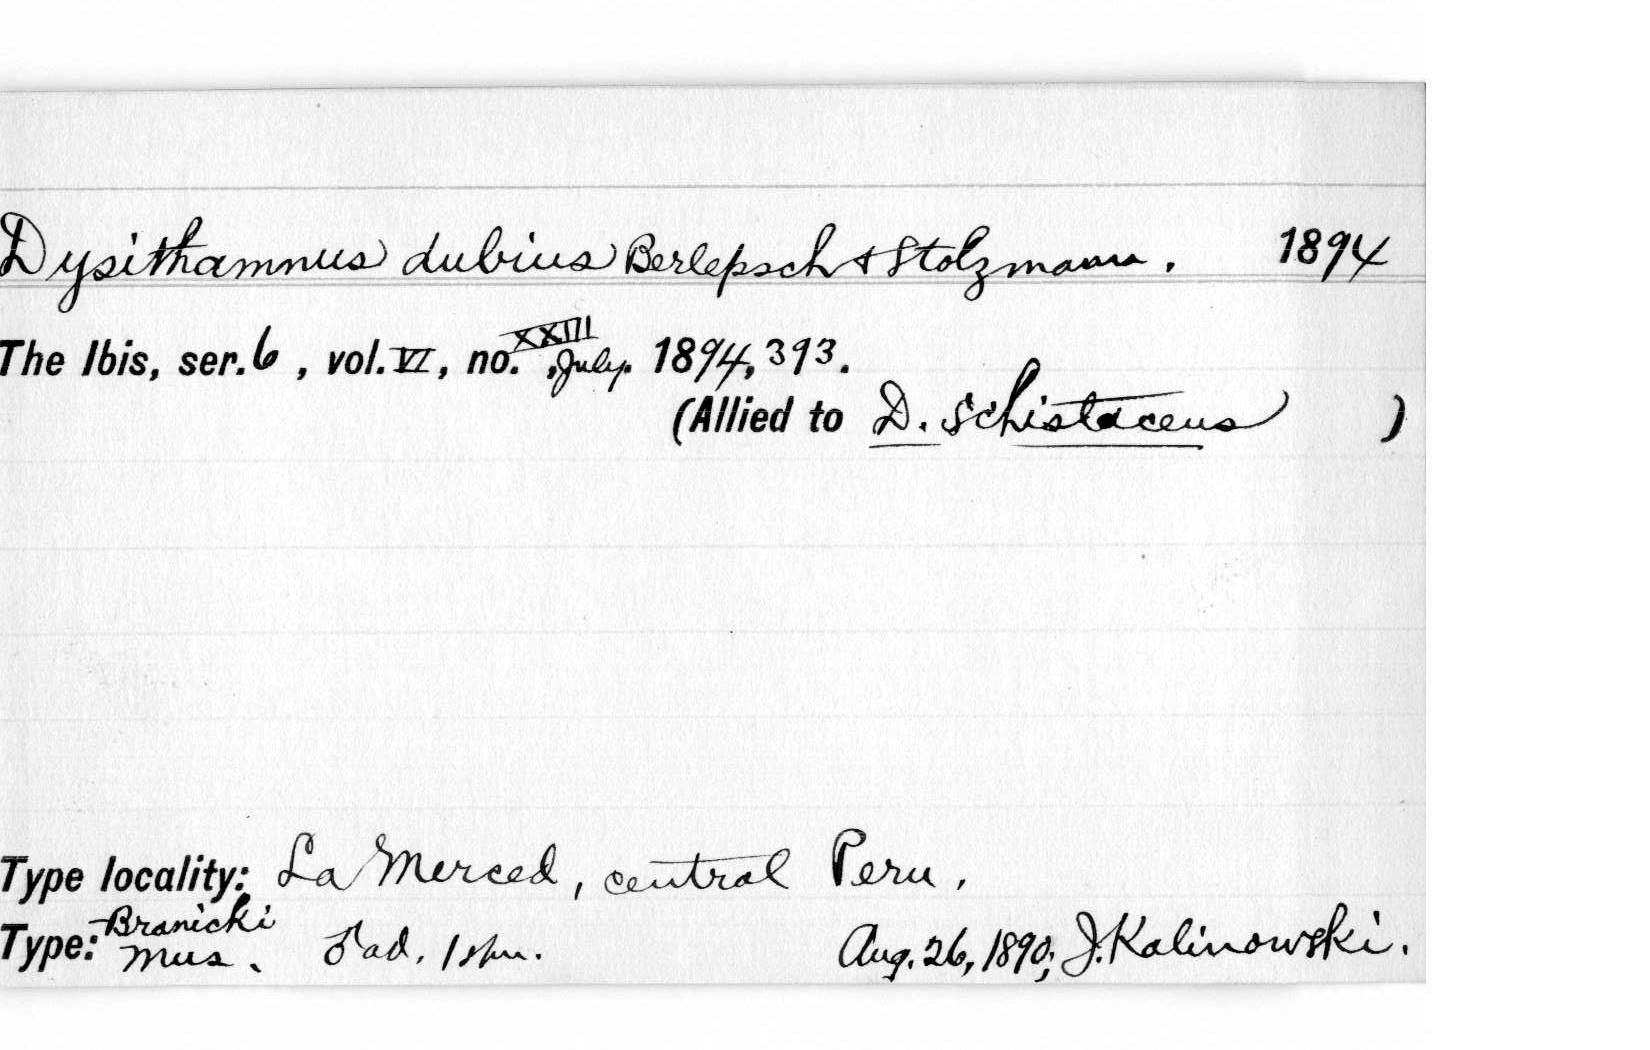 Dysithamnus dubius Berlepsch & Stolzmann. 1894
The Ibis, ser. 6, vol. VI, no. XXIII, July. 1894, 393.
(Allied to D. schistaceus )
Type locality: La Merced, central Peru.
Type: Branicki Mus. ♂ ad. 1 spm. Aug. 26, 1890; J. Kalinowski.